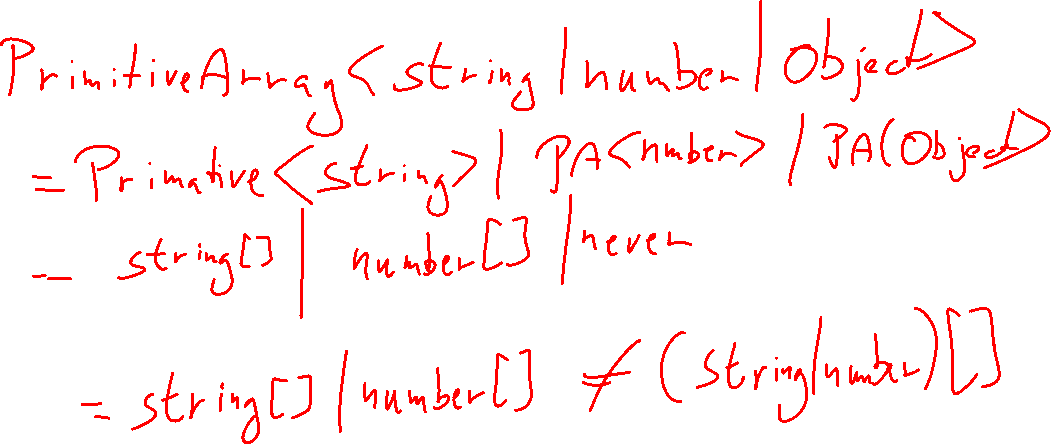 PrimitiveArray<string | number | Object>
= Primative<string> | PA<nmber> | PA(Object>
= string[] | number[] | never
= string[] | number[] ≠ (string|number)[]